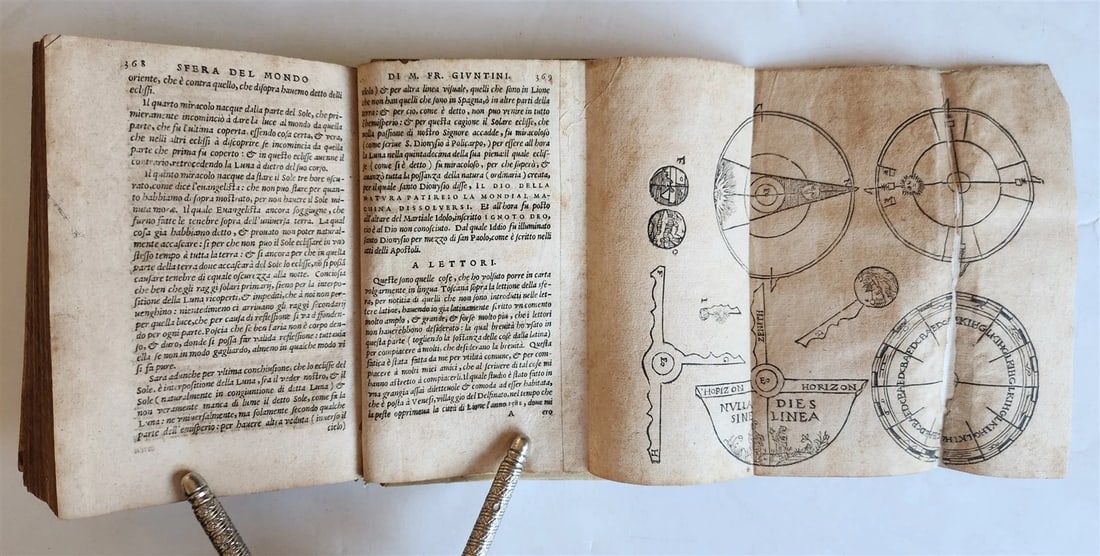 368 SFERA DEL MONDO
oriente, che è contra quello, che disopra hauemo detto delli
eclissi.
Il quarto miracolo nacque dalla parte del Sole, che pri-
mieramente incominciò a dare la luce al mondo da quella
parte, che fu l'ultima coperta. essendo cosa certa, & vera,
che nelli altri eclissi à discoprire se incomincia da quella
parte che prima fu coperta: & in questo eclisse auenne il
contrario, retrocedendo la Luna à dietro del suo corso.
Il quinto miracolo nacque da stare il Sole tre hore oscu-
rato. come dice l'euangelista: che non può stare per quan-
to habbiamo di sopra mostrato, per non hauere il Sole mi-
nuta moræ. Il quale Euangelista ancora soggiugne, che
furno fatte le tenebre sopra dell'uniuersa terra. La qual
cosa gia habbiamo detto, & prouato non poter natural-
mente accascare: si per che non può il Sole eclissare in vno
stesso tempo à tutta la terra: & si ancora per che in quella
parte della terra doue accascarà del Sole lo eclisse, nō si possa
causare tenebre di equale oscurezza alla notte. Conciosia
che ben che gli raggi solari primarij, sieno per la interpo-
sitione della Luna ricoperti, & impediti, che à noi non per-
uenghino: nientedimeno ci arriuano gli raggi secondarij
per quella luce, che per causa di reflessione si và diffonden-
do per ogni parte. Poscia che se ben l'aria non è corpo den-
so, & duro, donde si possa far valida reflessione: tuttauia
ella se non in modo gagliardo, almeno in qualche modo vi
si fa pure.
Sarà adunche per vltima conchiusione, che lo eclisse del
Sole, è interpositione della Luna, fra il veder nostro, & il
Sole (naturalmente in congiuntione di ditta Luna) &
non veramente manca di lume il detto Sole, come fa la
Luna: ne vniuersalmente, ma solamente secondo qualche
parte dell'emisperio: per hauere altra veduta (inuerso il
cielo)
DI M. FR. GIVNTINI. 369
cielo) & per altra linea visuale, quelli che sono in Lione
che non han quelli che sono in Spagna, ò in altre parti della
terra: & per ciò, come è detto, non può venire in tutto
l'hemisperio: & per questa cagione il Solare eclisse, che
nella passione di nostro Signore accadde, fu miracoloso
(come scriue S. Dionysio à Policarpo,) per essere all'hora
la Luna nella quintadecima della sua piena il quale eclis-
se (come si è detto) fu miracoloso, per che superò, &
auanzò tutta la possanza della natura (ordinaria) creata,
per il quale santo Dionysio disse, IL DIO DELLA
NATVRA PATIRE SO LA MONDIAL MA-
CHINA DISSOLVERSI. Et all'hora fu posto
all'altare del Martiale Idolo, inscritto IGNOTO DEO,
cioè al Dio non conosciuto. Dal quale Iddio fu illuminato
santo Dionysio per mezzo di san Paolo, come è scritto nelli
atti delli Apostoli.
A LETTORI.
Queste sono quelle cose, che ho volsuto porre in carta
volgarmente in lingua Toscana sopra la lettione della sfe-
ra, per notitia di quelli che non sono introdutti nelle let-
tere latine, hauendo io gia latinamente scritto vn comento
molto amplo, & grande, & forse molto più, che i lettori
non hauerebbono desiderato: la qual breuità ho vsato in
questa parte (togliendo la sostanza delle cose dalla latina)
per compiacere à molti, che desiderano la breuità. Questa
fatica è stata fatta da me per vtilità comune, & per com-
piacere à molti miei amici, che al scriuere di tal cose mi
hanno astretto à compiacerli. Il quale studio è stato fatto in
vna grangia assai diletteuole & comoda ad esser habitata,
che è posta à Venesì, villaggio del Delfinato, nel tempo che
la peste opprimeua la città di Lione l'anno 1582, doue mi
A ero
ZENITH
HORIZON HORIZON
NVLLA DIES
SINE LINEA